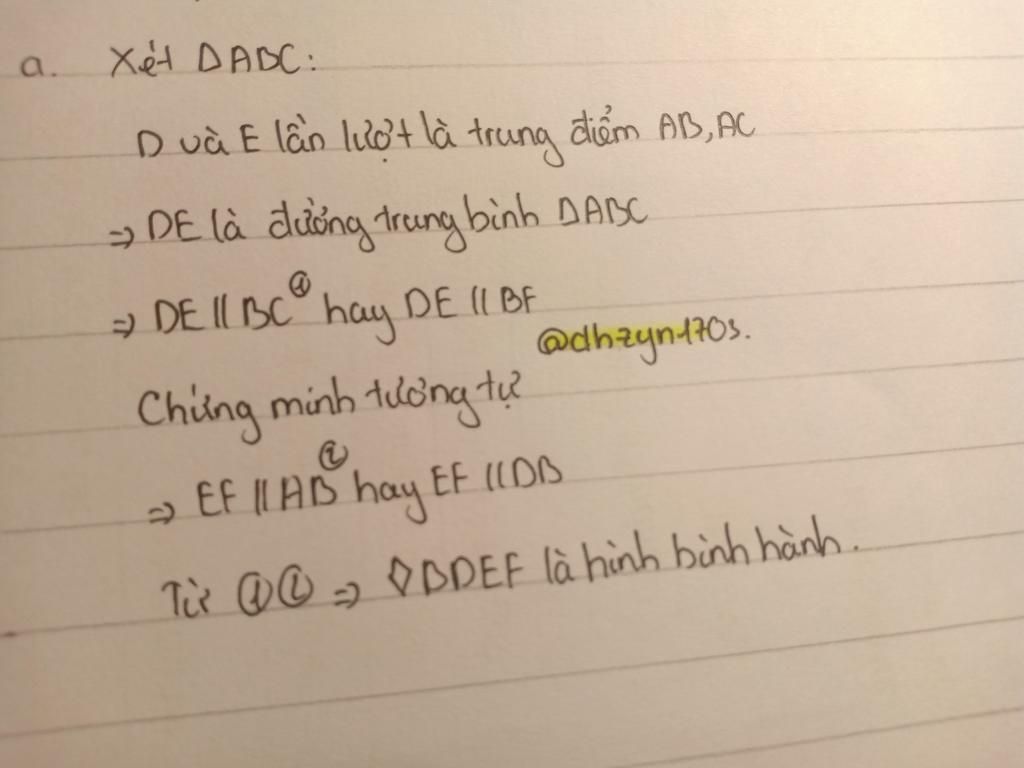 a. Xét ΔABC:
D và E lần lượt là trung điểm AB, AC
⇒ DE là đường trung bình ΔABC
⇒ DE // BC ① hay DE // BF
@dhzyn1703.
Chứng minh tương tự
⇒ EF // AB ② hay EF // DB
Từ ① ② ⇒ ◊BDEF là hình bình hành.